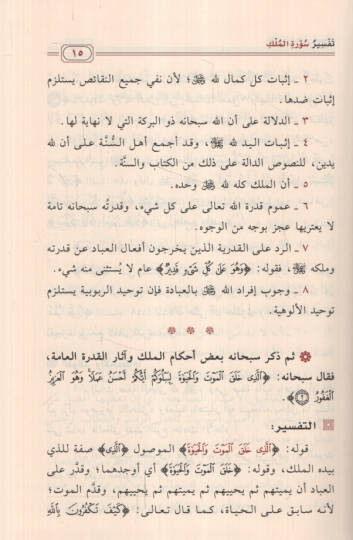 تفسير سورة الملك
١٥
٢ ـ إثبات كل كمال لله ﷻ؛ لأن نفي جميع النقائص يستلزم
إثبات ضدها.
٣ ـ الدلالة على أن الله سبحانه ذو البركة التي لا نهاية لها.
٤ ـ إثبات اليد لله ﷻ، وقد أجمع أهل السُّنَّة على أن لله
يدين، للنصوص الدالة على ذلك من الكتاب والسنَّة.
٥ ـ أن الملك كله لله ﷻ وحده.
٦ ـ عموم قدرة الله تعالى على كل شيء، وقدرتُه سبحانه تامة
لا يعتريها عجز بوجه من الوجوه.
٧ ـ الرد على القدرية الذين يخرجون أفعال العباد عن قدرته
وملكه ﷻ، فقوله: ﴿وَهُوَ عَلَىٰ كُلِّ شَيْءٍ قَدِيرٌ﴾ عام لا يُستثنى منه شيء.
٨ ـ وجوب إفراد الله ﷻ بالعبادة فإن توحيد الربوبية يستلزم
توحيد الألوهية.
* * *
ثم ذكر سبحانه بعض أحكام الملك وآثار القدرة العامة،
فقال سبحانه: ﴿الَّذِي خَلَقَ الْمَوْتَ وَالْحَيَاةَ لِيَبْلُوَكُمْ أَيُّكُمْ أَحْسَنُ عَمَلًا وَهُوَ الْعَزِيزُ
الْغَفُورُ ٢﴾.
التفسير:
قوله: ﴿الَّذِي خَلَقَ الْمَوْتَ وَالْحَيَاةَ﴾ الموصول ﴿الَّذِي﴾ صفة للذي
بيده الملك، وقوله: ﴿خَلَقَ الْمَوْتَ وَالْحَيَاةَ﴾ أي أوجدهما؛ وقدَّر على
العباد أن يميتهم ثم يحييهم ثم يميتهم ثم يُحييهم، وقدَّم الموت؛
لأنه سابق على الحياة، كما قال تعالى: ﴿كَيْفَ تَكْفُرُونَ بِاللَّهِ